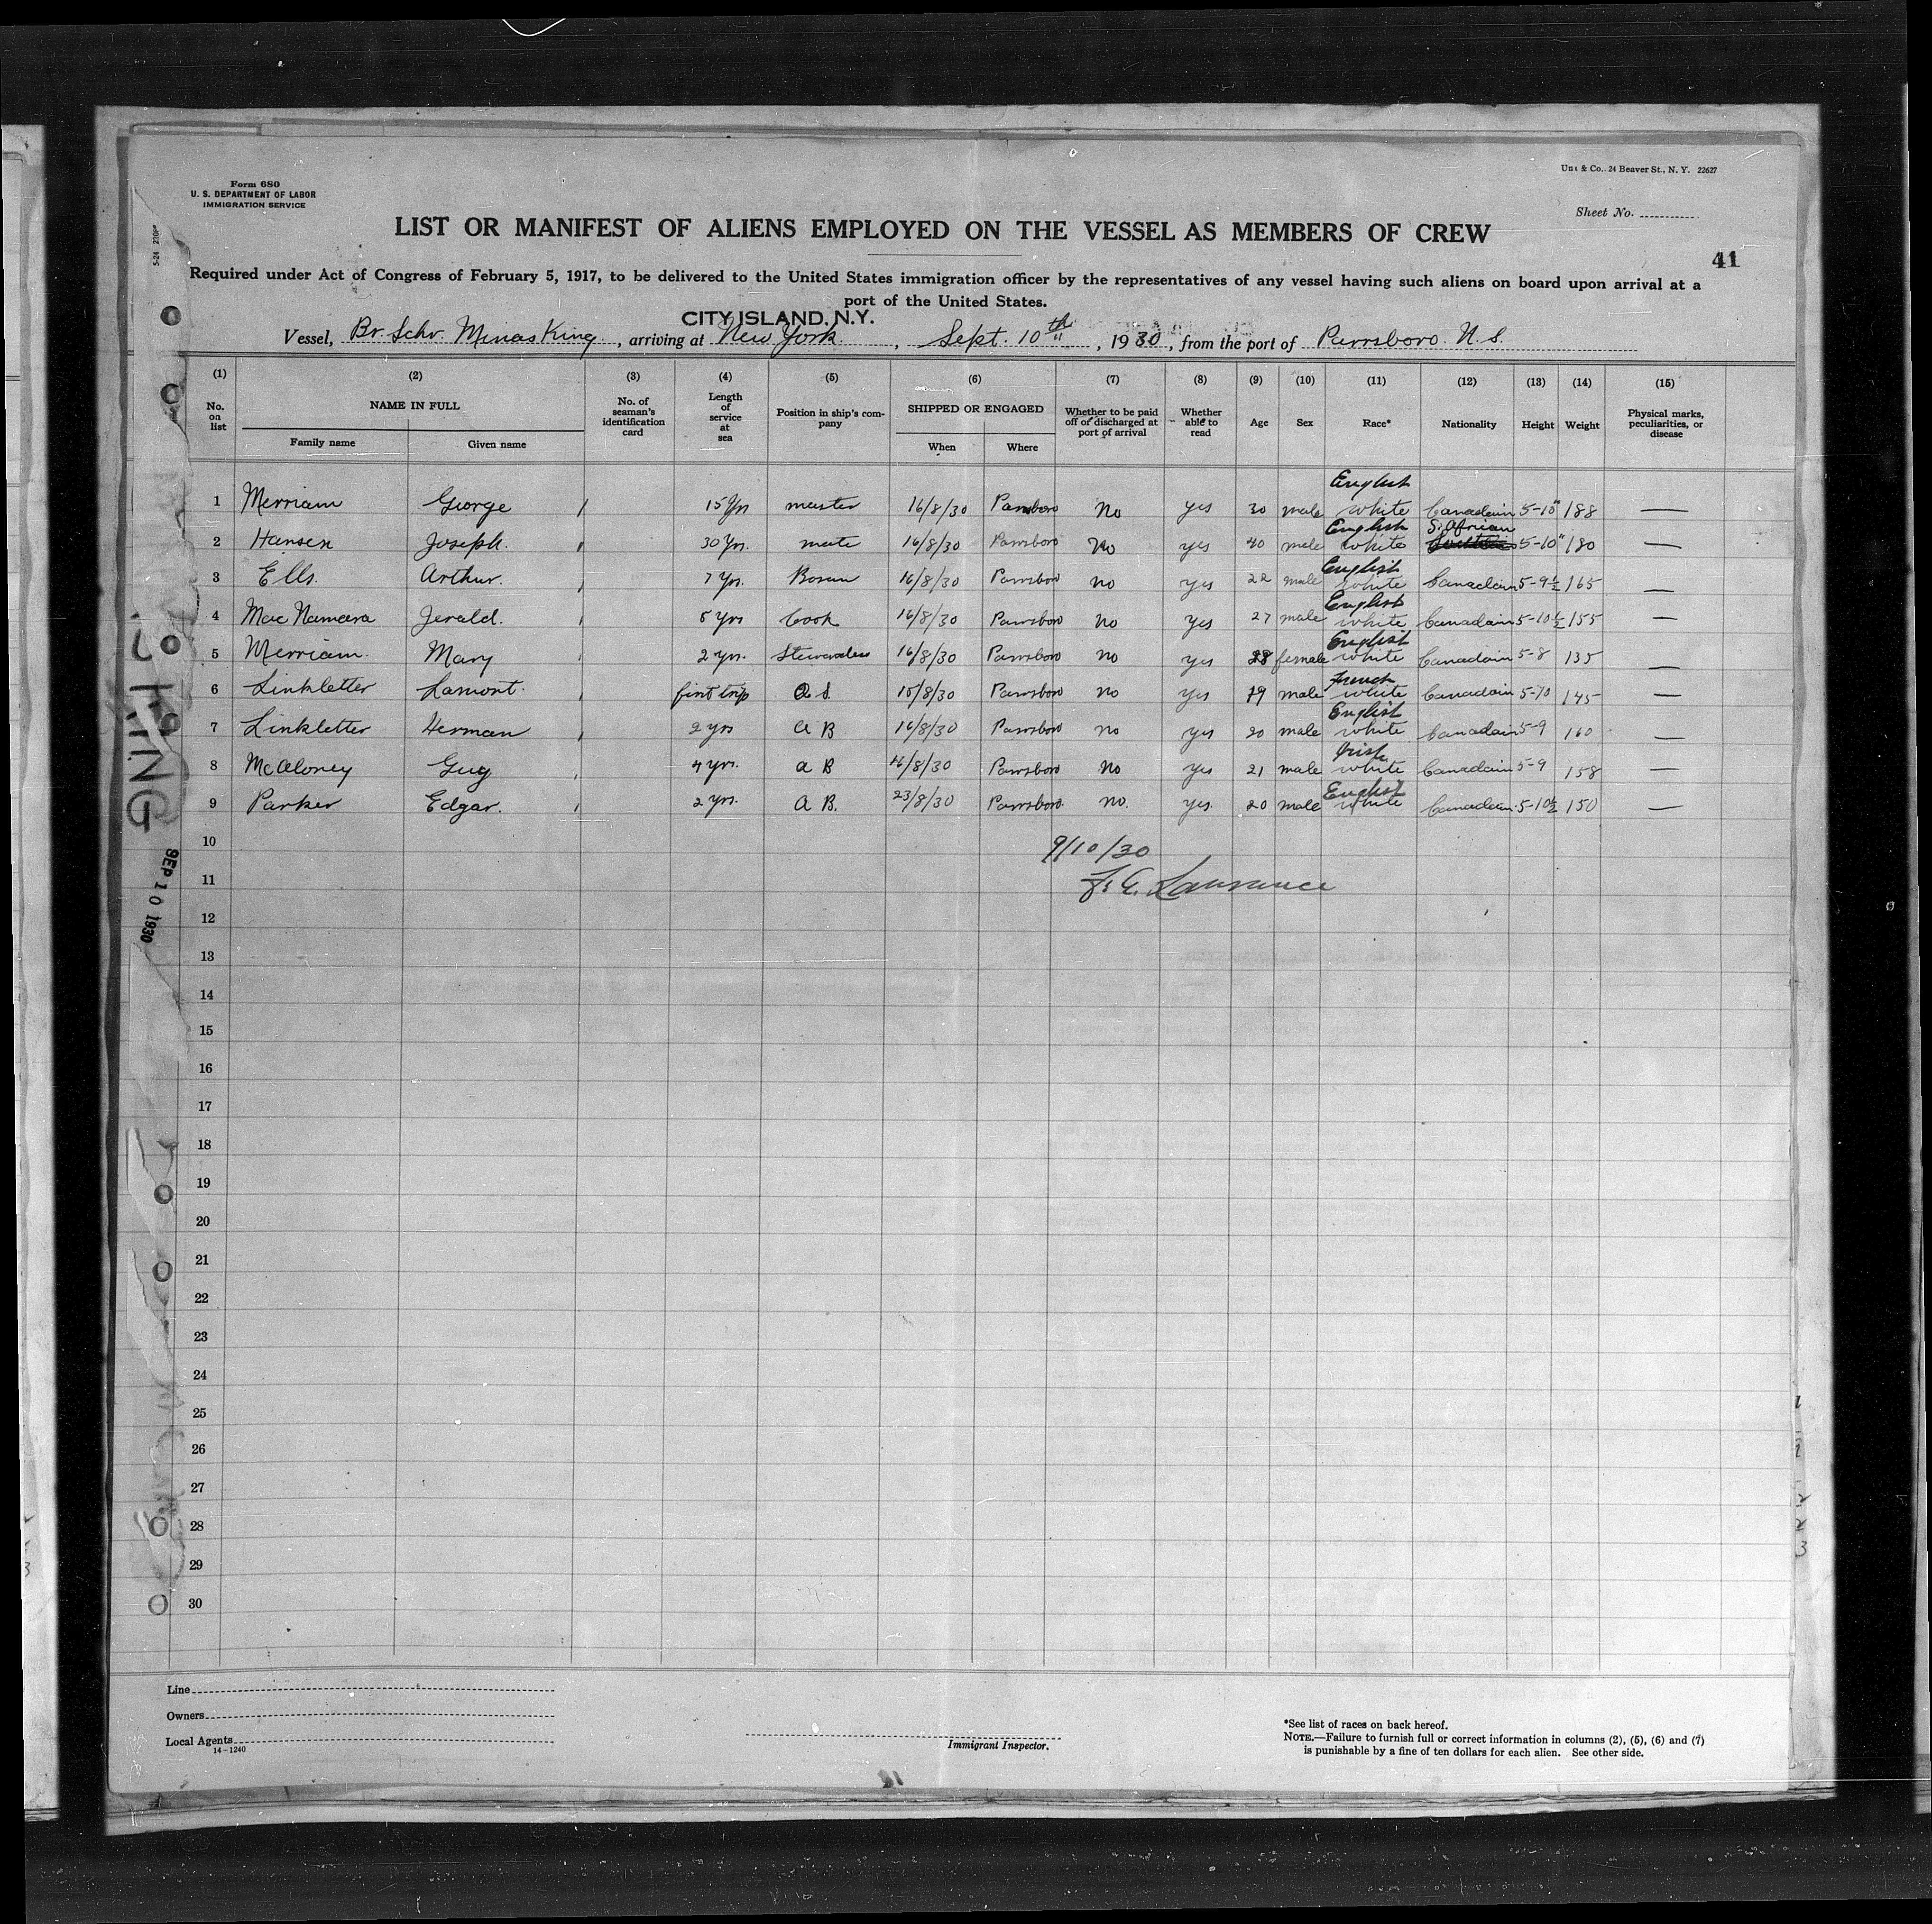 Form 680
U. S. DEPARTMENT OF LABOR
IMMIGRATION SERVICE
& Co., 24 Beaver St., N. Y. 22627
Sheet No.
LIST OR MANIFEST OF ALIENS EMPLOYED ON THE VESSEL AS MEMBERS OF CREW
41
Required under Act of Congress of February 5, 1917, to be delivered to the United States immigration officer by the representatives of any vessel having such aliens on board upon arrival at a
port of the United States.
CITY ISLAND, N.Y.
Vessel, Br. Schr. Minas King, arriving at New York, Sept. 10th, 1930, from the port of Parrsboro. N.S.
(1) (2) (3) (4) (5) (6) (7) (8) (9) (10) (11) (12) (13) (14) (15)
No. on list NAME IN FULL No. of seaman's identification card Length of service at sea Position in ship's company SHIPPED OR ENGAGED Whether to be paid off or discharged at port of arrival Whether able to read Age Sex Race* Nationality Height Weight Physical marks, peculiarities, or disease
Family name Given name When Where
English
1 Merriam George 15 Yrs master 16/8/30 Parrsboro No yes 30 male white Canadain 5-10" 188 —
English S. African
2 Hansen Joseph. 30 Yrs. mate 16/8/30 Parrsboro No yes 40 male white 5-10" 180 —
English
3 Ells. Arthur. 7 Yrs. Bosun 16/8/30 Parrsboro no yes 22 male white Canadain 5-9½ 165 —
English
4 Mac Namara Jerald. 5 Yrs Cook 16/8/30 Parrsboro no yes 27 male white Canadain 5-10½ 155 —
English
5 Merriam. Mary 2 yrs. Stewardess 16/8/30 Parrsboro no yes 28 female white Canadain 5-8 135 —
French
6 Linkletter Lamont. first trip O S. 15/8/30 Parrsboro no yes 19 male white Canadain 5-10 145 —
English
7 Linkletter Herman 2 yrs A B 16/8/30 Parrsboro no yes 20 male white Canadain 5-9 160 —
Irish
8 McAloney Guy 4 yrs. A B 16/8/30 Parrsboro No yes 21 male white Canadain 5-9 158 —
English
9 Parker Edgar. 2 yrs. A B. 23/8/30 Parrsboro. no. yes. 20 male white Canadain. 5-10½ 150 —
10
9/10/30
11
Lawrance
12
13
14
15
16
17
18
19
20
21
22
23
24
25
26
27
28
29
30
KING
SEP 10 1930
Line
Owners
Local Agents
14-1240
Immigrant Inspector.
*See list of races on back hereof.
NOTE.—Failure to furnish full or correct information in columns (2), (5), (6) and (7)
is punishable by a fine of ten dollars for each alien. See other side.